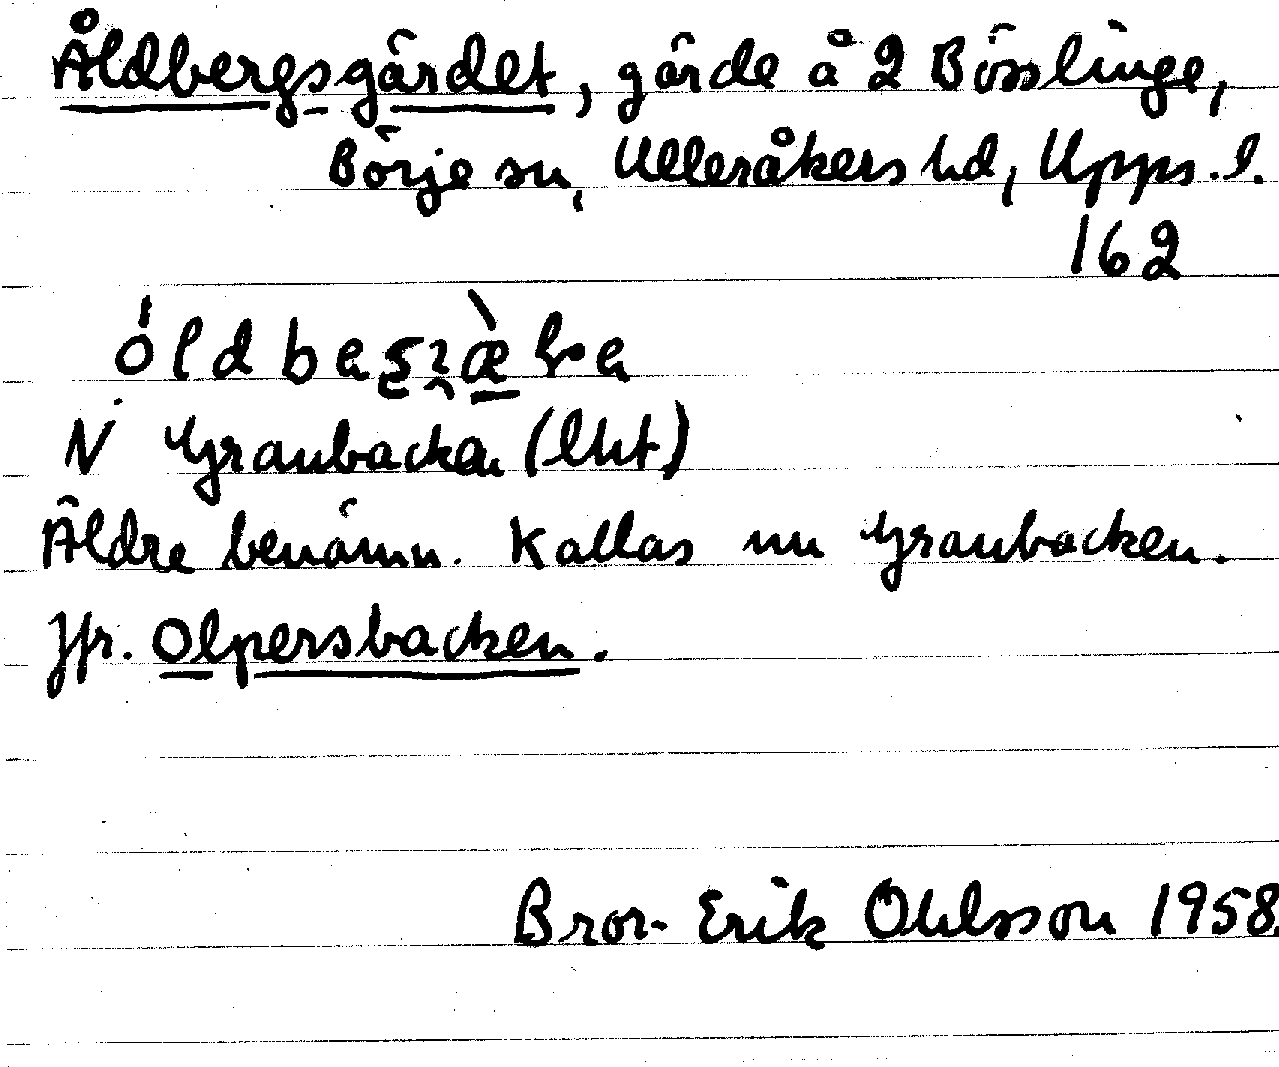 Åldbergsgärdet, gärde å 2 Bösslinge,
Börje sn, Ulleråkers hd, Upps.l.
162
N Granbacka (lht)
Äldre benämn. Kallas nu Granbacken.
Jfr. Olpersbacken.
Bror-Erik Ohlsson 1958.